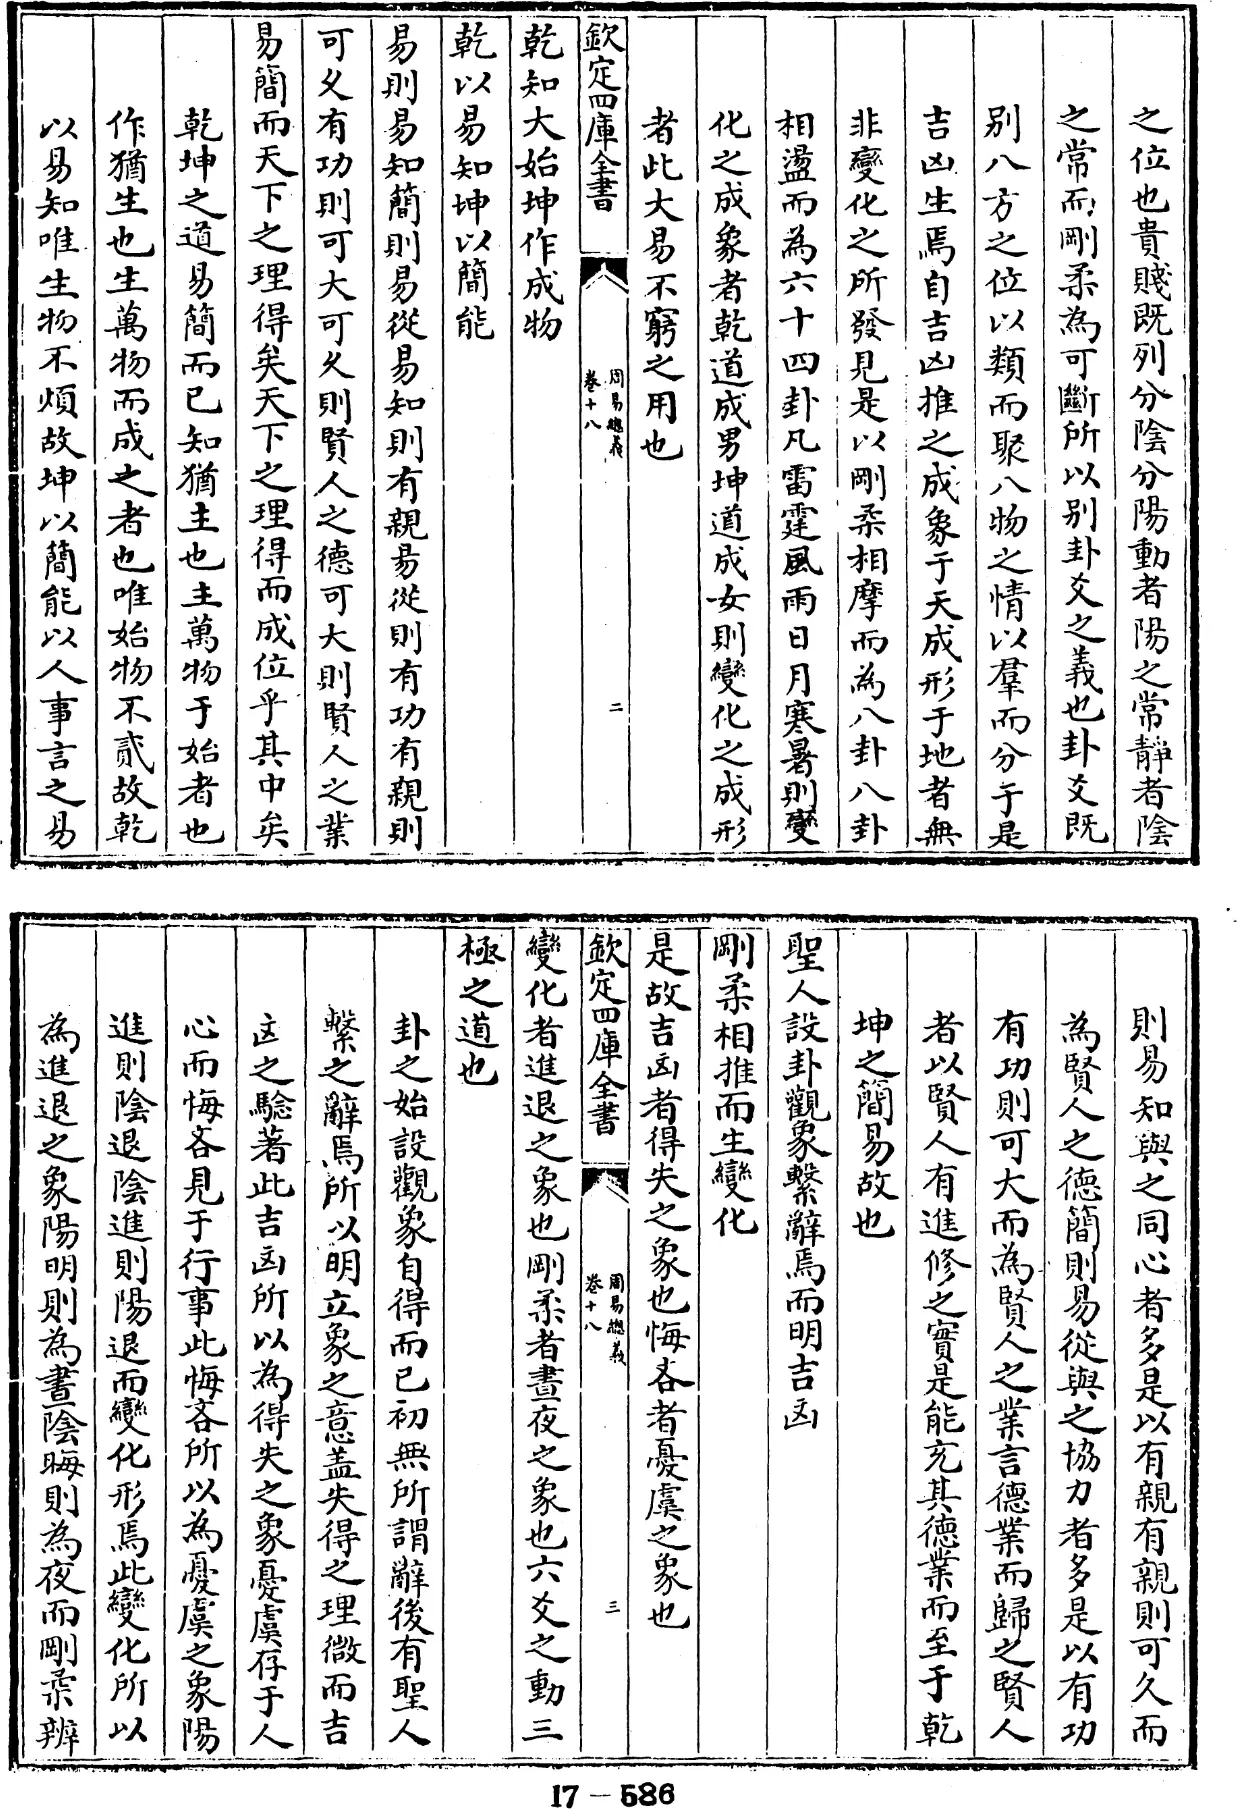 之位也貴賤既列分陰分陽動者陽之常靜者陰
之常而剛柔為可斷所以別卦爻之義也卦爻既
別八方之位以類而聚八物之情以羣而分于是
吉凶生焉自吉凶推之成象于天成形于地者無
非變化之所發見是以剛柔相摩而為八卦八卦
相盪而為六十四卦凡雷霆風雨日月寒暑則變
化之成象者乾道成男坤道成女則變化之成形
者此大易不窮之用也
欽定四庫全書
周易總義
卷十八
二
乾知大始坤作成物
乾以易知坤以簡能
易則易知簡則易從易知則有親易從則有功有親則
可久有功則可大可久則賢人之德可大則賢人之業
易簡而天下之理得矣天下之理得而成位乎其中矣
乾坤之道易簡而已知猶主也主萬物于始者也
作猶生也生萬物而成之者也唯始物不貳故乾
以易知唯生物不煩故坤以簡能以人事言之易
則易知與之同心者多是以有親有親則可久而
為賢人之德簡則易從與之協力者多是以有功
有功則可大而為賢人之業言德業而歸之賢人
者以賢人有進修之實是能充其德業而至于乾
坤之簡易故也
聖人設卦觀象繫辭焉而明吉凶
剛柔相推而生變化
是故吉凶者得失之象也悔吝者憂虞之象也
欽定四庫全書
周易總義
卷十八
三
變化者進退之象也剛柔者晝夜之象也六爻之動三
極之道也
卦之始設觀象自得而已初無所謂辭後有聖人
繫之辭焉所以明立象之意蓋失得之理微而吉
凶之驗著此吉凶所以為得失之象憂虞存于人
心而悔吝見于行事此悔吝所以為憂虞之象陽
進則陰退陰進則陽退而變化形焉此變化所以
為進退之象陽明則為晝陰晦則為夜而剛柔辨
17－586